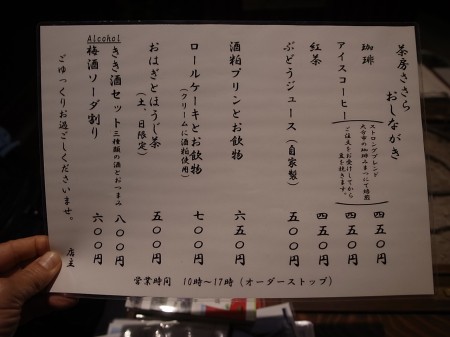 茶房ささら
おしながき
珈琲 四五〇円
ストロングブレンド
大谷市の珈琲みまつにて焙煎
ご注文をお受けしてから
豆を挽きます。
アイスコーヒー 四五〇円
紅茶 四五〇円
ぶどうジュース(自家製) 五〇〇円
酒粕プリンとお飲物 六五〇円
ロールケーキとお飲物 七〇〇円
(クリームに酒粕使用)
おはぎとほうじ茶 五〇〇円
(土、日限定)
きき酒セット 三種類の酒とおつまみ 八〇〇円
Alcohol
梅酒ソーダ割り 六〇〇円
ごゆっくりお過ごしくださいませ。
店主
営業時間 10時~17時(オーダーストップ)